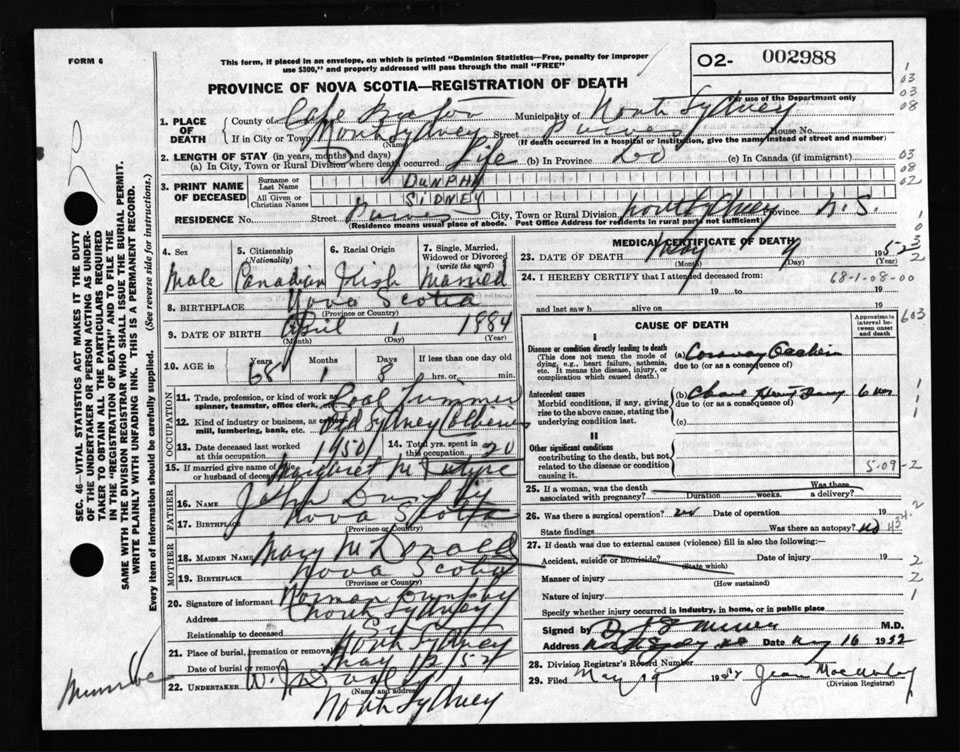 FORM 6
This form, if placed in an envelope, on which is printed "Dominion Statistics—Free, penalty for improper
use $300," and properly addressed will pass through the mail "FREE"
02- 002988
PROVINCE OF NOVA SCOTIA—REGISTRATION OF DEATH
For use of the Department only
1. PLACE OF DEATH
County of Cape Breton Municipality of North Sydney
If in City or Town North Sydney Street Purves House No.
(Name) (If death occurred in a hospital or institution, give the name instead of street and number)
2. LENGTH OF STAY (in years, months and days)
(a) In City, Town or Rural Division where death occurred Life (b) In Province do (c) In Canada (if immigrant)
3. PRINT NAME OF DECEASED
Surname or Last Name DUNPHY
All Given or Christian Names SIDNEY
RESIDENCE No. Street Purves City, Town or Rural Division North Sydney Province N.S.
(Residence means usual place of abode. Post Office Address for residents in rural parts not sufficient)
4. Sex Male
5. Citizenship (Nationality) Canadian
6. Racial Origin Irish
7. Single, Married, Widowed or Divorced (write the word) Married
8. BIRTHPLACE Nova Scotia
(Province or Country)
9. DATE OF BIRTH April 1 1884
(Month) (Day) (Year)
10. AGE in Years 68 Months 1 Days 8 If less than one day old hrs. or min.
OCCUPATION
11. Trade, profession, or kind of work as spinner, teamster, office clerk, Coal Trimmer
12. Kind of industry or business, as cotton mill, lumbering, bank, etc. Old Sydney Collieries
13. Date deceased last worked at this occupation 1950
14. Total yrs. spent in this occupation 20
15. If married give name of wife or husband of deceased Margaret
FATHER
16. NAME John Dunphy
17. BIRTHPLACE Nova Scotia
(Province or Country)
MOTHER
18. MAIDEN NAME Mary McDonald
19. BIRTHPLACE Nova Scotia
(Province or Country)
20. Signature of informant Norman Dunphy
Address North Sydney
Relationship to deceased
21. Place of burial, cremation or removal North Sydney
Date of burial or removal May 12/52
22. UNDERTAKER W. J.
(Name and address)
North Sydney
MEDICAL CERTIFICATE OF DEATH
23. DATE OF DEATH May 9 1952
(Month) (Day)
24. I HEREBY CERTIFY that I attended deceased from 68-1-08-00
19 to 19
and last saw h alive on 19
CAUSE OF DEATH
Approximate interval between onset and death
I
Disease or condition directly leading to death
(This does not mean the mode of dying, e.g., heart failure, asthenia, etc. It means the disease, injury, or complication which caused death.)
(a)
due to (or as a consequence of)
Antecedent causes
Morbid conditions, if any, giving rise to the above cause, stating the underlying condition last.
(b)
due to (or as a consequence of)
(c)
II
Other significant conditions
contributing to the death, but not related to the disease or condition causing it.
5-09-2
25. If a woman, was the death associated with pregnancy? Duration weeks. Was there a delivery?
26. Was there a surgical operation? no Date of operation 19
State findings Was there an autopsy? no
27. If death was due to external causes (violence) fill in also the following:—
Accident, suicide or homicide? Date of injury 19
(State which)
Manner of injury
(How sustained)
Nature of injury
Specify whether injury occurred in industry, in home, or in public place
Signed by M.D.
Address Date May 16 1952
28. Division Registrar's Record Number
29. Filed May 19 1952 Jean
(Division Registrar)
SEC. 46—VITAL STATISTICS ACT MAKES IT THE DUTY
OF THE UNDERTAKER OR PERSON ACTING AS UNDER-
TAKER TO OBTAIN ALL THE PARTICULARS REQUIRED
IN THE "REGISTRATION OF DEATH" AND TO FILE THE
SAME WITH THE DIVISION REGISTRAR WHO SHALL ISSUE THE BURIAL PERMIT.
WRITE PLAINLY WITH UNFADING INK. THIS IS A PERMANENT RECORD.
Every item of information should be carefully supplied. (See reverse side for instructions.)